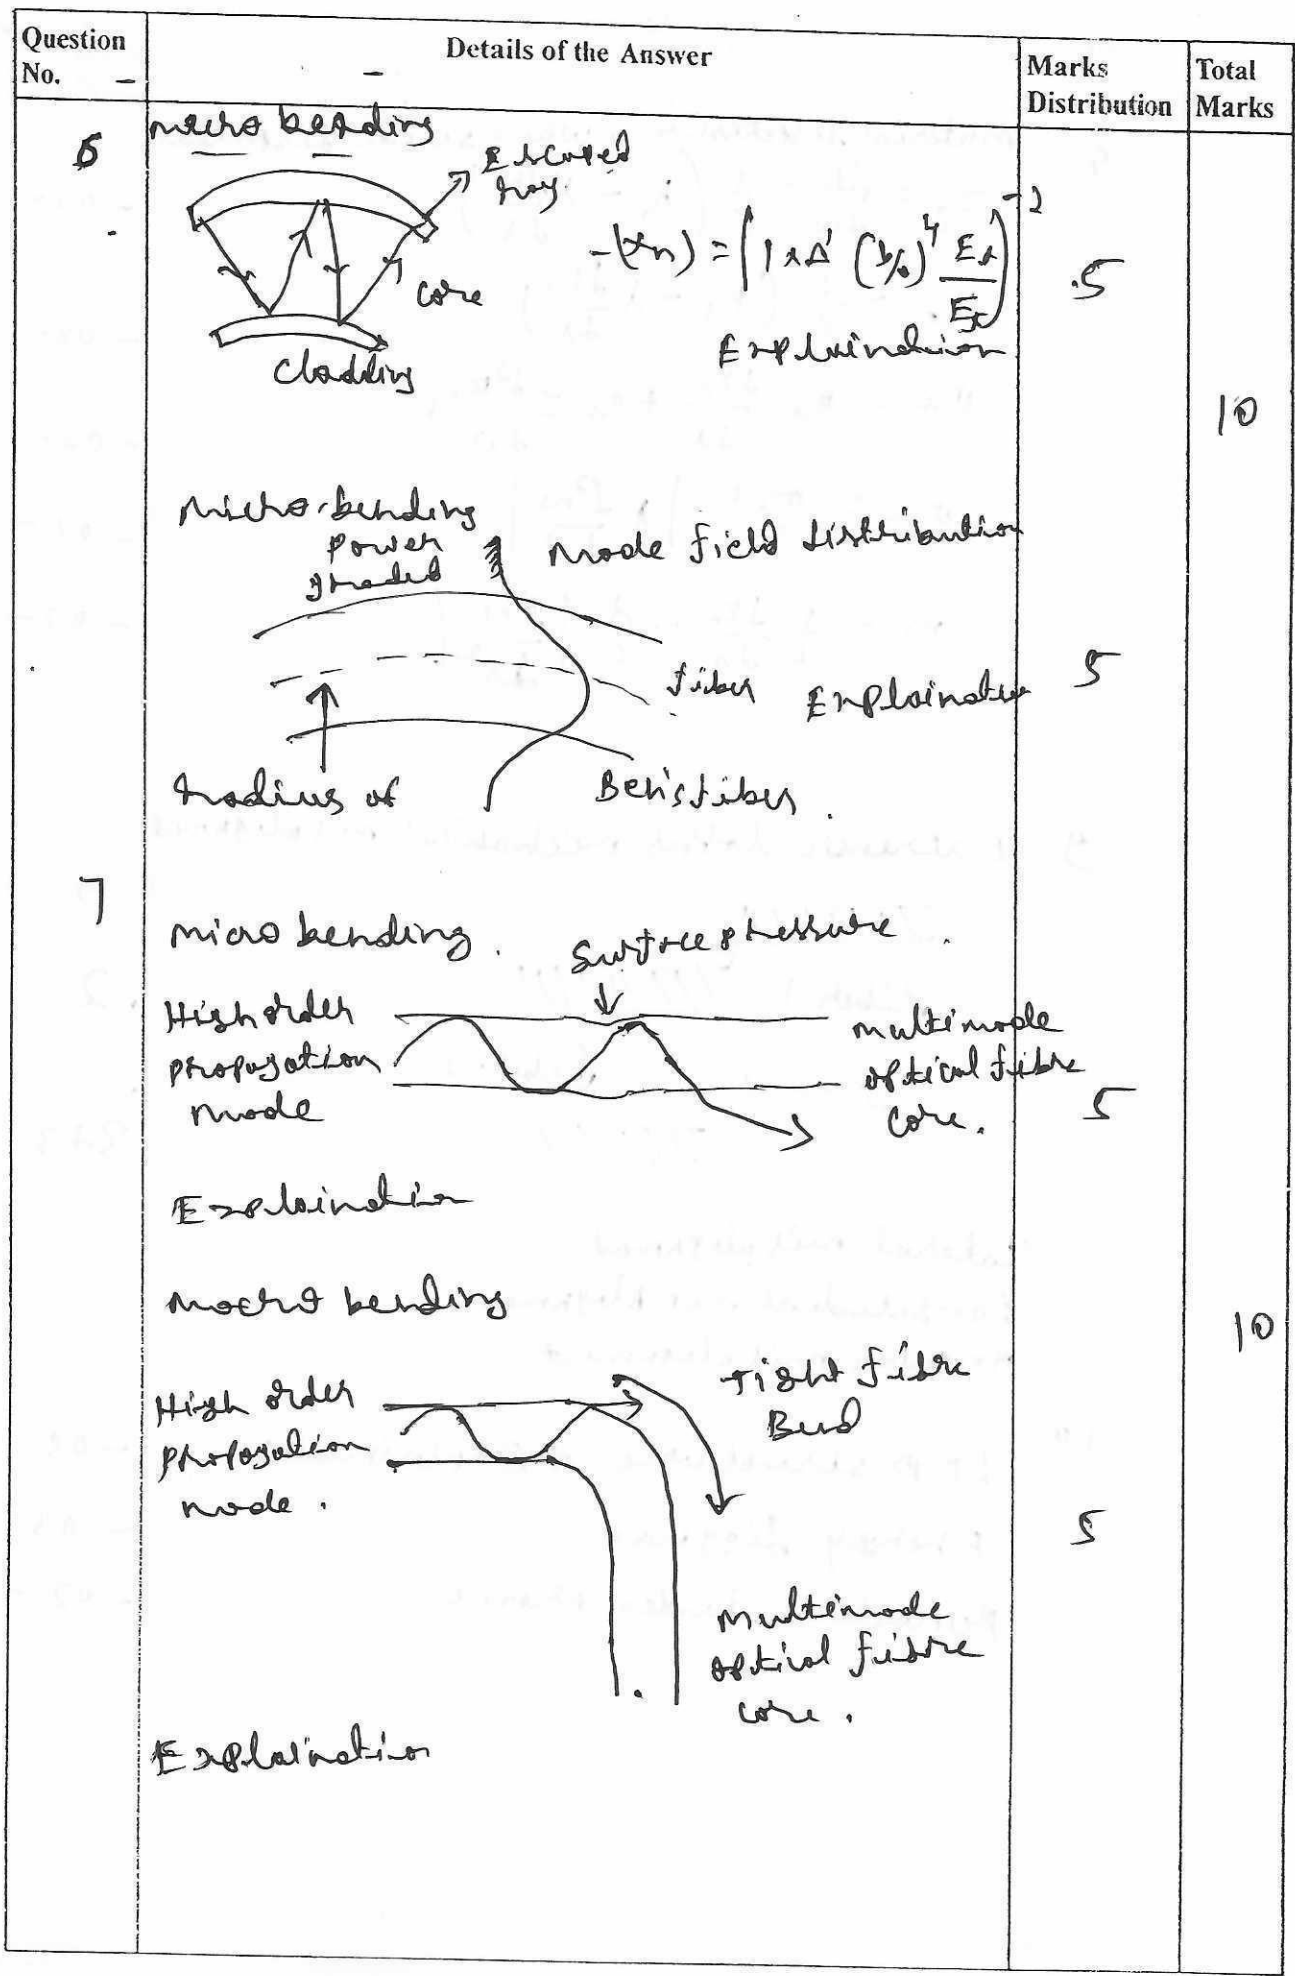 Question No.
Details of the Answer
Marks Distribution
Total Marks
6
macro bending
Escaped ray
core
cladding
Explaination
5
10
Micro-bending
power
mode field distribution
fiber
Explaination
5
Radius of
7
micro bending.
Surface pressure.
High order propogation mode
multimode optical fibre core.
5
Explaination
Macro bending
10
High order propogation mode.
Tight fibre Bend
5
Multimode optical fibre core.
Explaination